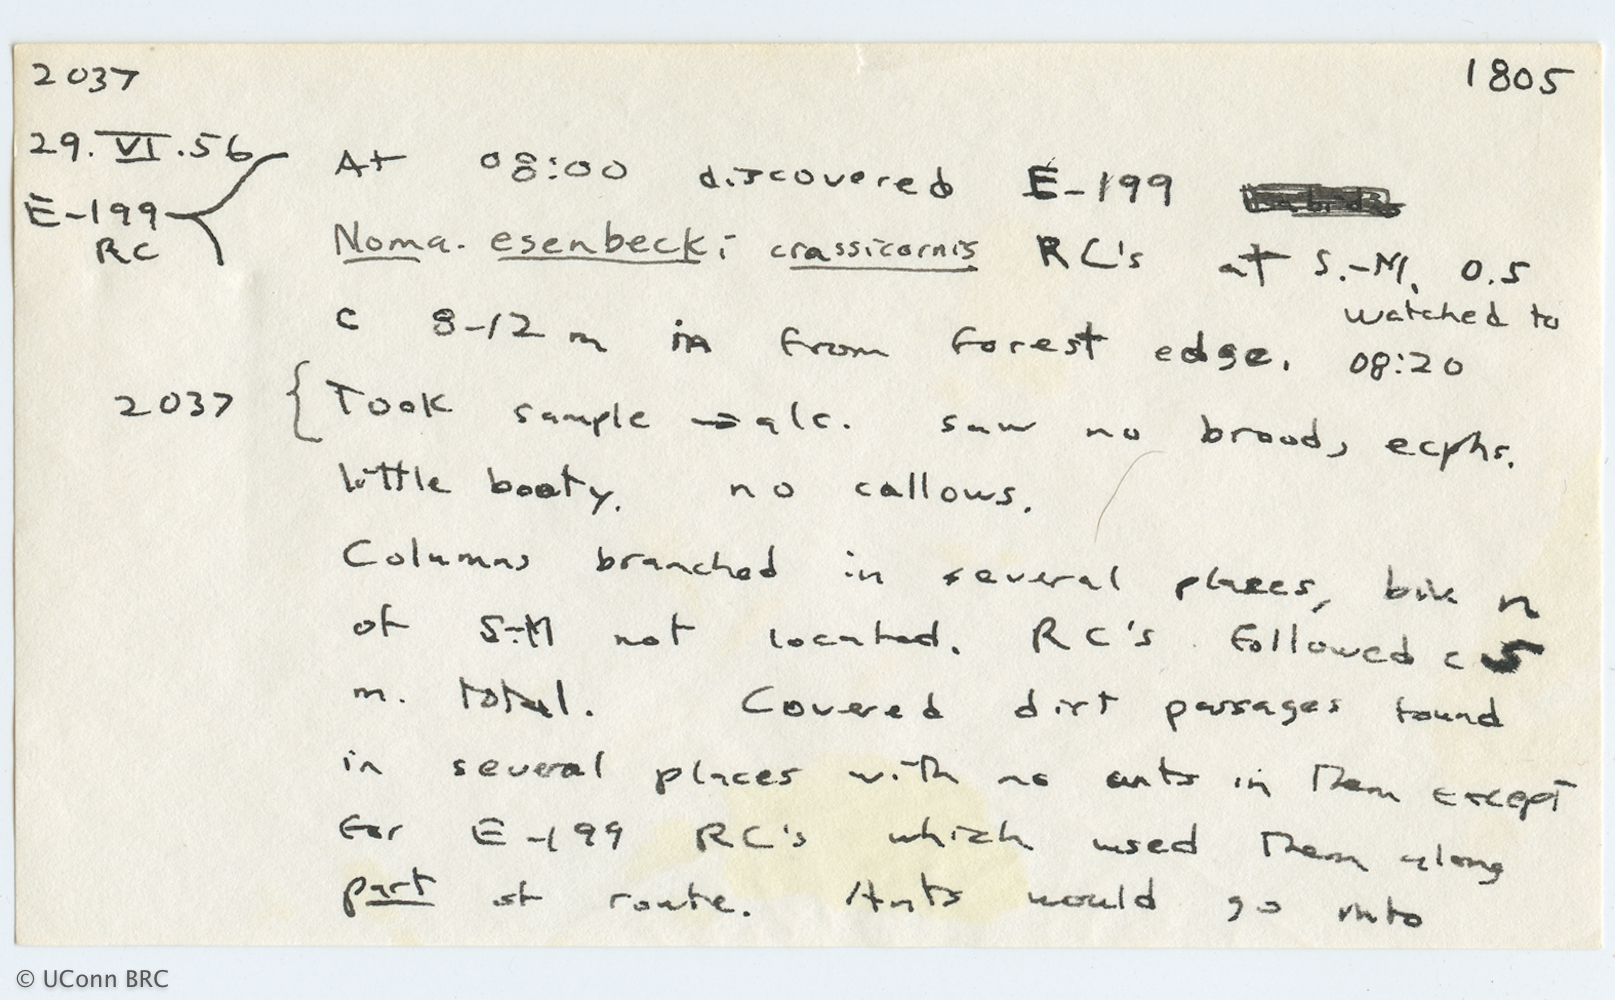 2037 1805
29.VI.56 At 08:00 discovered E-199
E-199 Noma. esenbecki crassicornis RC's at S.-M. 0.5
RC
c 8-12 m in from forest edge. watched to
08:20
2037 { Took sample → alc. saw no brood, ecphs.
little booty. no callows.
Columns branched in several places, biv
of S-M not located. RC's followed c 5
m. total. Covered dirt passages found
in several places with no ants in them except
for E-199 RC's which used them along
part of route. Ants would go into
© UConn BRC